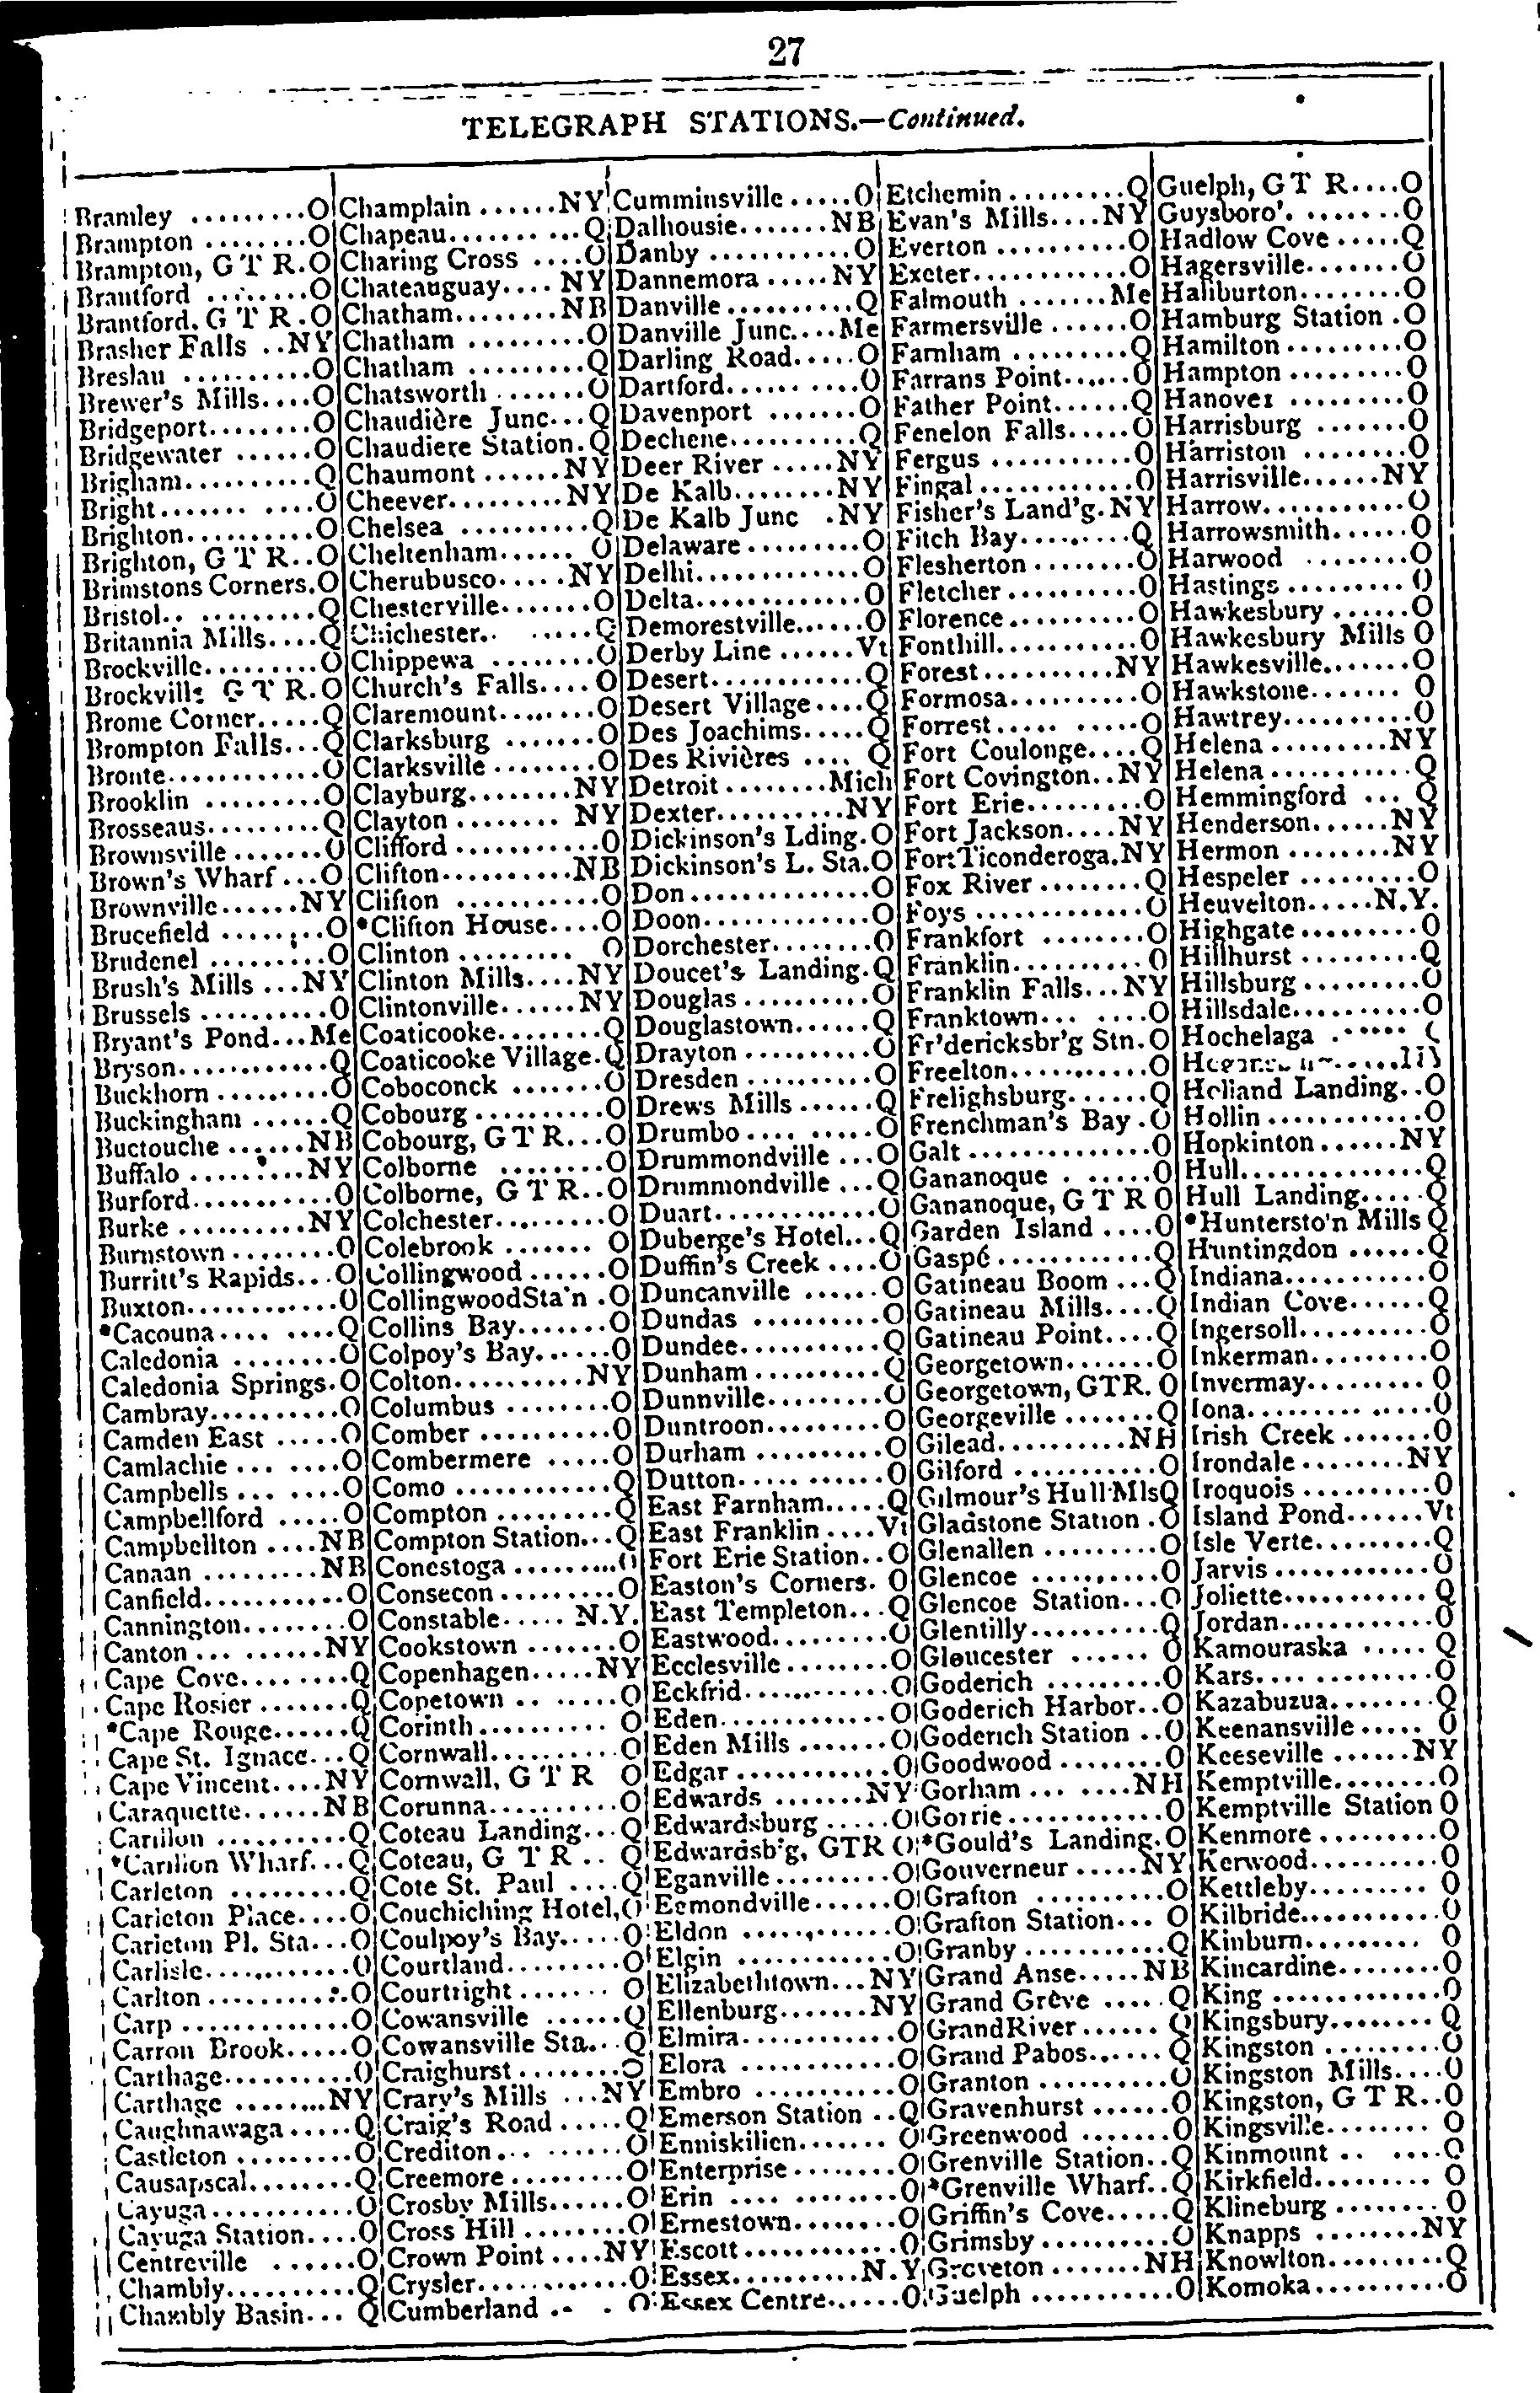 27
TELEGRAPH STATIONS.—Continued.
Bramley .........O
Brampton ........O
Brampton, G T R.O
Brantford ........O
Brantford, G T R.O
Brasher Falls ..NY
Breslau ..........O
Brewer's Mills....O
Bridgeport........O
Bridgewater ......O
Brigham..........Q
Bright...........O
Brighton..........O
Brighton, G T R..O
Brimstons Corners.O
Bristol...........Q
Britannia Mills....Q
Brockville.........O
Brockville G T R.O
Brome Corner.....Q
Brompton Falls...Q
Bronte............O
Brooklin .........O
Brosseaus.........Q
Brownsville.......O
Brown's Wharf...O
Brownville......NY
Brucefield ........O
Brudenel .........O
Brush's Mills ...NY
Brussels ..........O
Bryant's Pond...Me
Bryson............Q
Buckhorn .........O
Buckingham ......Q
Buctouche ......NB
Buffalo .........NY
Burford...........O
Burke ..........NY
Burnstown ........O
Burritt's Rapids...O
Buxton............O
*Cacouna.........Q
Caledonia ........O
Caledonia Springs.O
Cambray..........O
Camden East .....O
Camlachie ........O
Campbells ........O
Campbellford .....O
Campbellton ....NB
Canaan .........NB
Canfield...........O
Cannington........O
Canton..........NY
Cape Cove........Q
Cape Rosier .......Q
*Cape Rouge......Q
Cape St. Ignace...Q
Cape Vincent....NY
Caraquette......NB
Carillon ..........Q
*Carillon Wharf...Q
Carleton .........Q
Carleton Place....O
Carleton Pl. Sta...O
Carlisle............O
Carlton...........O
Carp .............O
Carron Brook.....O
Carthage..........O
Carthage .........NY
Caughnawaga.....Q
Castleton .........O
Causapscal........Q
Cayuga...........O
Cayuga Station....O
Centreville ......O
Chambly..........Q
Chambly Basin...Q
Champlain......NY
Chapeau..........Q
Charing Cross ....O
Chateauguay....NY
Chatham........NB
Chatham .........O
Chatham .........Q
Chatsworth .......O
Chaudière Junc...Q
Chaudiere Station.Q
Chaumont ......NY
Cheever.........NY
Chelsea ..........Q
Cheltenham......O
Cherubusco.....NY
Chesterville.......O
Chichester........Q
Chippewa ........O
Church's Falls....O
Claremount........O
Clarksburg .......O
Clarksville ........O
Clayburg........NY
Clayton ........NY
Clifford ...........O
Clifton..........NB
Clifton ...........O
*Clifton House....O
Clinton ..........O
Clinton Mills....NY
Clintonville......NY
Coaticooke........Q
Coaticooke Village.Q
Coboconck .......O
Cobourg ..........O
Cobourg, G T R...O
Colborne ........O
Colborne, G T R..O
Colchester.........O
Colebrook .......O
Collingwood ......O
CollingwoodSta'n .O
Collins Bay.......O
Colpoy's Bay......O
Colton..........NY
Columbus ........O
Comber ..........O
Combermere .....O
Como ............Q
Compton .........Q
Compton Station...Q
Conestoga .........O
Consecon .........O
Constable.....N.Y.
Cookstown .......O
Copenhagen.....NY
Copetown ........O
Corinth..........O
Cornwall..........O
Cornwall, G T R O
Corunna..........O
Coteau Landing...Q
Coteau, G T R .. Q
Cote St. Paul ....Q
Couchiching Hotel,O
Coulpoy's Bay.....O
Courtland.........O
Courtright .......O
Cowansville ......Q
Cowansville Sta...Q
Craighurst........O
Crary's Mills ...NY
Craig's Road .....Q
Crediton..........O
Creemore.........O
Crosby Mills......O
Cross Hill ........O
Crown Point ....NY
Crysler............O
Cumberland .. . O
Cumminsville .....O
Dalhousie.......NB
Danby ...........O
Dannemora .....NY
Danville..........Q
Danville Junc....Me
Darling Road.....O
Dartford..........O
Davenport .......O
Dechene..........Q
Deer River .....NY
De Kalb........NY
De Kalb Junc .NY
Delaware.........O
Delhi.............O
Delta.............O
Demorestville......O
Derby Line ......Vt
Desert............Q
Desert Village....Q
Des Joachims.....Q
Des Rivières .... Q
Detroit ........Mich
Dexter..........NY
Dickinson's Lding.O
Dickinson's L. Sta.O
Don ..............O
Doon.............O
Dorchester........O
Doucet's Landing.Q
Douglas ..........O
Douglastown......Q
Drayton ..........O
Dresden ..........O
Drews Mills ......Q
Drumbo..........O
Drummondville ...O
Drummondville ...Q
Duart.............O
Duberge's Hotel...Q
Duffin's Creek ....O
Duncanville ......O
Dundas ..........O
Dundee...........Q
Dunham ..........Q
Dunnville.........O
Duntroon.........O
Durham ..........O
Dutton...........O
East Farnham.....Q
East Franklin ....Vt
Fort Erie Station..O
Easton's Corners. O
East Templeton...Q
Eastwood.........O
Ecclesville........O
Eckfrid............O
Eden.............O
Eden Mills .......O
Edgar ............O
Edwards .......NY
Edwardsburg .....O
Edwardsb'g, GTR O
Eganville .........O
Egmondville......O
Eldon ...........O
Elgin ............O
Elizabethtown...NY
Ellenburg.......NY
Elmira............O
Elora ............O
Embro ...........O
Emerson Station ..Q
Enniskillen.......O
Enterprise ........O
Erin ............O
Ernestown........O
Escott ............O
Essex..........N.Y
Essex Centre......O
Etchemin .........Q
Evan's Mills....NY
Everton ..........O
Exeter............O
Falmouth .......Me
Farmersville ......O
Farnham .........Q
Farrans Point......O
Father Point......Q
Fenelon Falls.....O
Fergus ...........O
Fingal............O
Fisher's Land'g.NY
Fitch Bay.........Q
Flesherton ........O
Fletcher ..........O
Florence..........O
Fonthill...........O
Forest..........NY
Formosa..........O
Forrest...........O
Fort Coulonge....Q
Fort Covington..NY
Fort Erie.........O
Fort Jackson....NY
Fort Ticonderoga.NY
Fox River ........Q
Foys .............O
Frankfort ........O
Franklin..........O
Franklin Falls...NY
Franktown........O
Fr'dericksbr'g Stn.O
Freelton...........O
Frelighsburg......Q
Frenchman's Bay .O
Galt ..............O
Gananoque . .....O
Gananoque, G T R O
Garden Island ....O
Gaspé ............Q
Gatineau Boom ...Q
Gatineau Mills....Q
Gatineau Point....Q
Georgetown.......O
Georgetown, GTR. O
Georgeville .......Q
Gilead..........NH
Gilford ...........O
Gilmour's Hull MlsQ
Gladstone Station .O
Glenallen .........O
Glencoe ..........O
Glencoe Station...O
Glentilly..........Q
Gloucester ...... O
Goderich .........O
Goderich Harbor..O
Goderich Station ..O
Goodwood ........O
Gorham ........NH
Gorrie............O
*Gould's Landing.O
Gouverneur .....NY
Grafton ..........O
Grafton Station... O
Granby ...........Q
Grand Anse.....NB
Grand Grève .....Q
GrandRiver...... Q
Grand Pabos...... Q
Granton ..........O
Gravenhurst ......O
Greenwood .......O
Grenville Station..Q
*Grenville Wharf..Q
Griffin's Cove.....Q
Grimsby ..........O
Groveton .......NH
Guelph ...........O
Guelph, G T R....O
Guysboro'. .......O
Hadlow Cove .....Q
Hagersville.......O
Haliburton........O
Hamburg Station .O
Hamilton.........O
Hampton .........O
Hanover .........O
Harrisburg .......O
Harriston ........O
Harrisville......NY
Harrow...........O
Harrowsmith......O
Harwood ........O
Hastings .........O
Hawkesbury ......O
Hawkesbury Mills O
Hawkesville.......O
Hawkstone....... O
Hawtrey..........O
Helena .........NY
Helena ...........Q
Hemmingford ... Q
Henderson......NY
Hermon ........NY
Hespeler .........O
Heuvelton.....N.Y.
Highgate.........O
Hillhurst .........Q
Hillsburg .........O
Hillsdale..........O
Hochelaga
Holland Landing..O
Hollin ............O
Hopkinton......NY
Hull..............Q
Hull Landing.....Q
*Huntersto'n Mills Q
Huntingdon ......Q
Indiana...........O
Indian Cove......Q
Ingersoll..........O
Inkerman.........O
Invermay.........O
Iona..............O
Irish Creek .......O
Irondale........NY
Iroquois ..........O
Island Pond......Vt
Isle Verte.........Q
Jarvis ............O
Joliette...........Q
Jordan............O
Kamouraska .....Q
Kars.............O
Kazabuzua........Q
Keenansville..... O
Keeseville ......NY
Kemptville........O
Kemptville Station O
Kenmore .........O
Kerwood..........O
Kettleby......... O
Kilbride...........O
Kinburn......... O
Kincardine........O
King .............O
Kingsbury........Q
Kingston .........O
Kingston Mills....O
Kingston, G T R..O
Kingsville........ O
Kinmount .. ....O
Kirkfield......... O
Klineburg ........O
Knapps ........NY
Knowlton.........Q
Komoka..........O